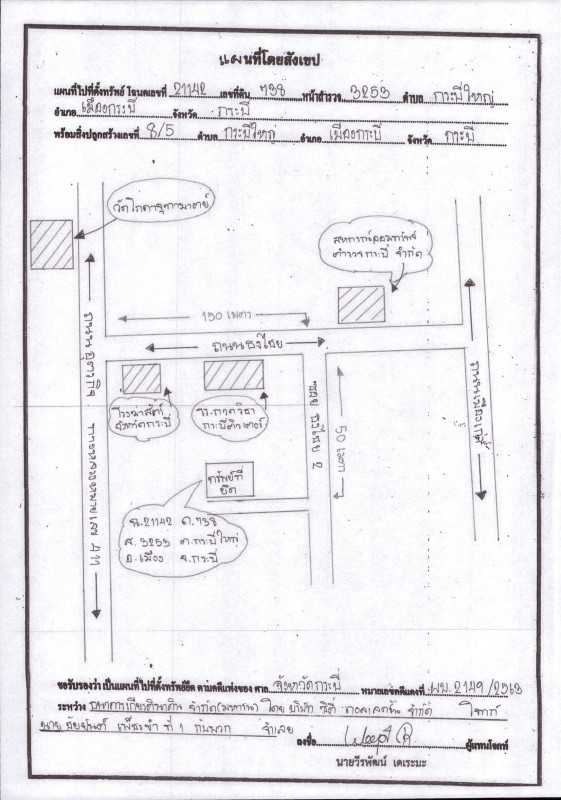 แผนที่โดยสังเขป
แผนที่ไปที่ตั้งทรัพย์ โฉนดเลขที่ 21142 เลขที่ดิน ๗38 หน้าสำรวจ 3253 ตำบล กระบี่ใหญ่
อำเภอ เมืองกระบี่ จังหวัด กระบี่
พร้อมสิ่งปลูกสร้างเลขที่ 8/5 ตำบล กระบี่ใหญ่ อำเภอ เมืองกระบี่ จังหวัด กระบี่
สหกรณ์ออมทรัพย์
ตำรวจกระบี่ จำกัด
150 เมตร
ถนนธงไชย
ถนนอุตรกิจ
ทางหลวงหมายเลข 411
จังหวัดกระบี่
ร.ร.กวดวิชา
กระบี่ติวเตอร์
ซอย ธงไชย 2
50 เมตร
ทรัพย์ที่
ยึด
ฉ.21142 ด.๗38
ส.3253 ต.กระบี่ใหญ่
อ.เมือง จ.กระบี่
ขอรับรองว่า เป็นแผนที่ไปที่ตั้งทรัพย์ยึด ตามคดีแพ่งของ ศาล จังหวัดกระบี่ หมายเลขคดีแดงที่ ผบ.2149/2563
ระหว่าง ธนาคารเกียรตินาคิน จำกัด(มหาชน) โดย จำกัด โจทก์
นาย ที่ 1 กับพวก จำเลย
ลงชื่อ ผู้แทนโจทก์
นายวีรพัฒน์ เดเระมะ